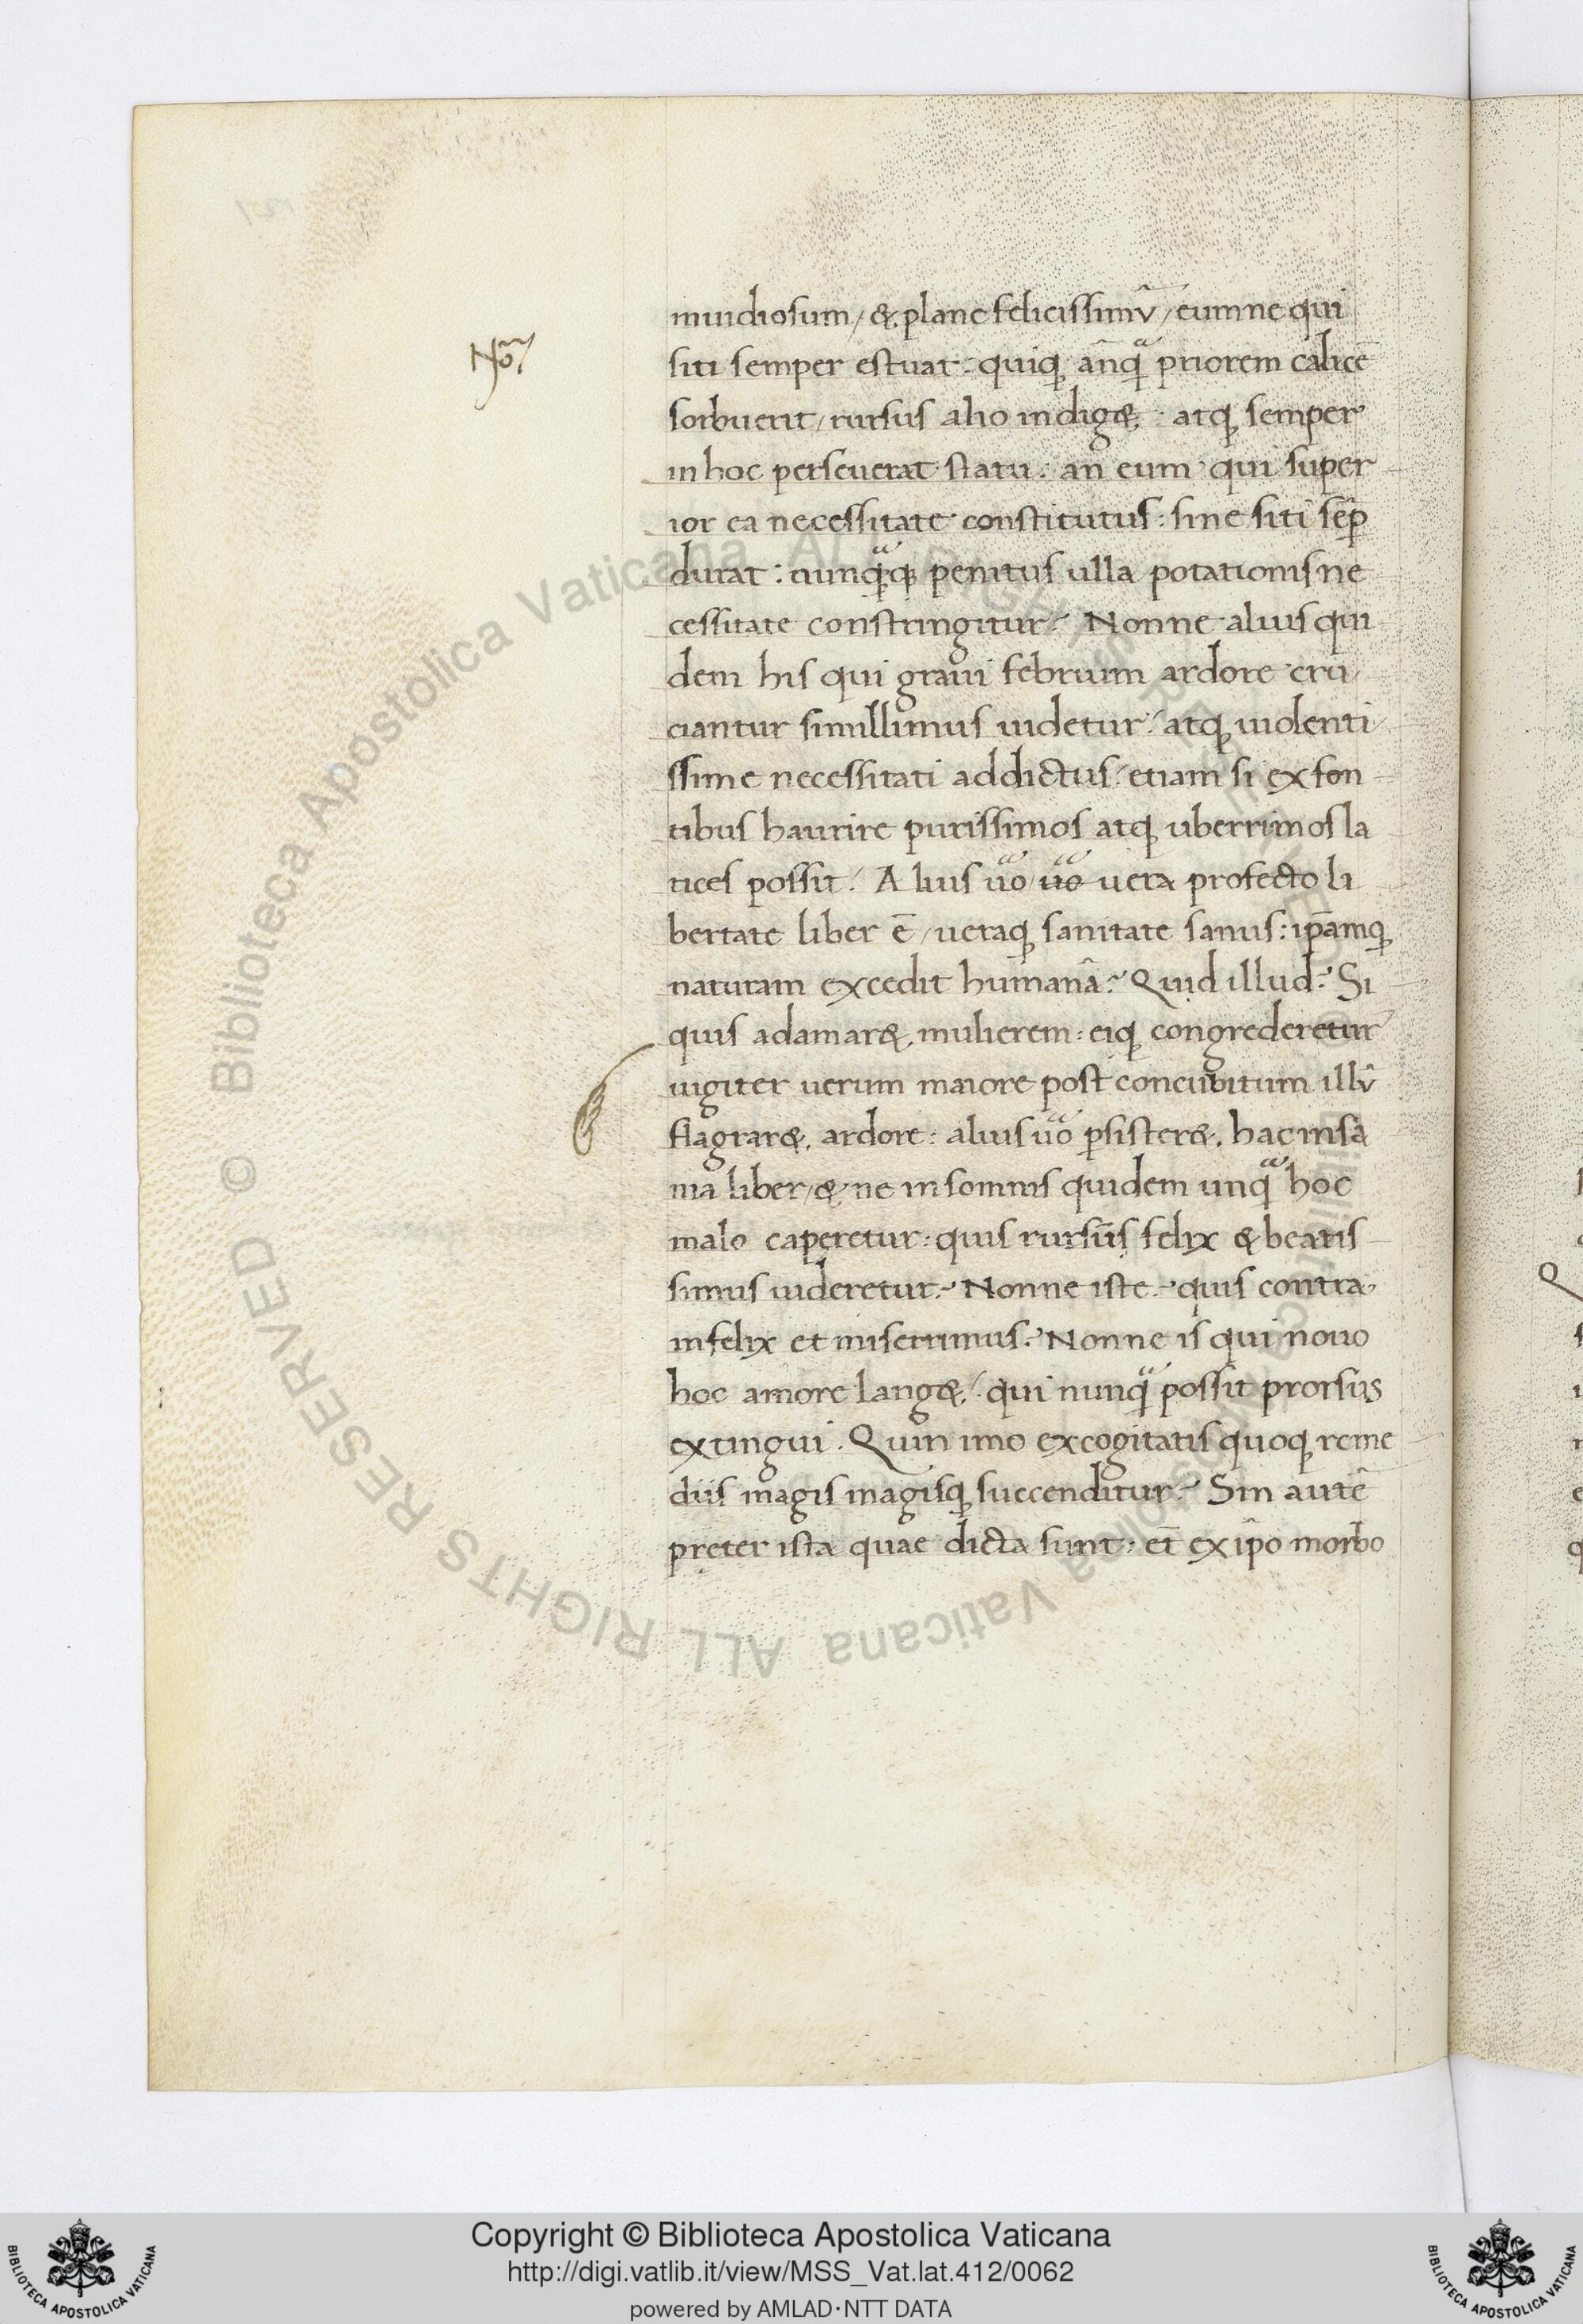 Noͫ
inuidiosum / &, plane felicissimv̂ / eumne qui
siti semper estuat : quiq; an̂q̃ priorem calicē
sorbuerit / rursus alio indig&, atq; semper
in hoc perseuerat statu : an eum qui super
ior ea necessitate constitutus : sine siti sēp
durat : nunq̃q; penitus ulla potationis ne
cessitate constringitur? Nonne alius qui
dem his qui graui febrium ardore cru
ciantur simillimus uidetur / atq; uiolenti
ssime necessitati addictus / etiam si ex fon
tibus haurire purissimos atq; uberrimos la
tices possit / Alius ũo ũo uera profecto li
bertate liber ē / ueraq; sanitate sanus : ip̄amq;
naturam excedit humanâ? Quid illud? Si
quis adamar&, mulierem : eiq; congrederetur
iugiter uerum maiore post concubitum illv̂
flagrar&, ardore : alius ũo p̱sister&, hac insâ
nia liber / &, ne in somnis quidem unq̃ hoc
malo caperetur : quis rursūs felix & beatis
simus uideretur? Nonne iste? quis contra
infelix et miserrimus? Nonne is qui nouo
hoc amore lang&, / qui nunq̃ possit prorsus
extingui . Quin imo excogitatis quoq; reme
diis magis magisq; succenditur? Sin autê
preter ista quae dicta sunt : et̄ ex ip̂o morbo
© Biblioteca Apostolica Vaticana ALL RIGHTS RESERVED
© Biblioteca Apostolica Vaticana ALL RIGHTS RESERVED
Copyright © Biblioteca Apostolica Vaticana
http://digi.vatlib.it/view/MSS_Vat.lat.412/0062
powered by AMLAD·NTT DATA
BIBLIOTECA APOSTOLICA VATICANA
BIBLIOTECA APOSTOLICA VATICANA